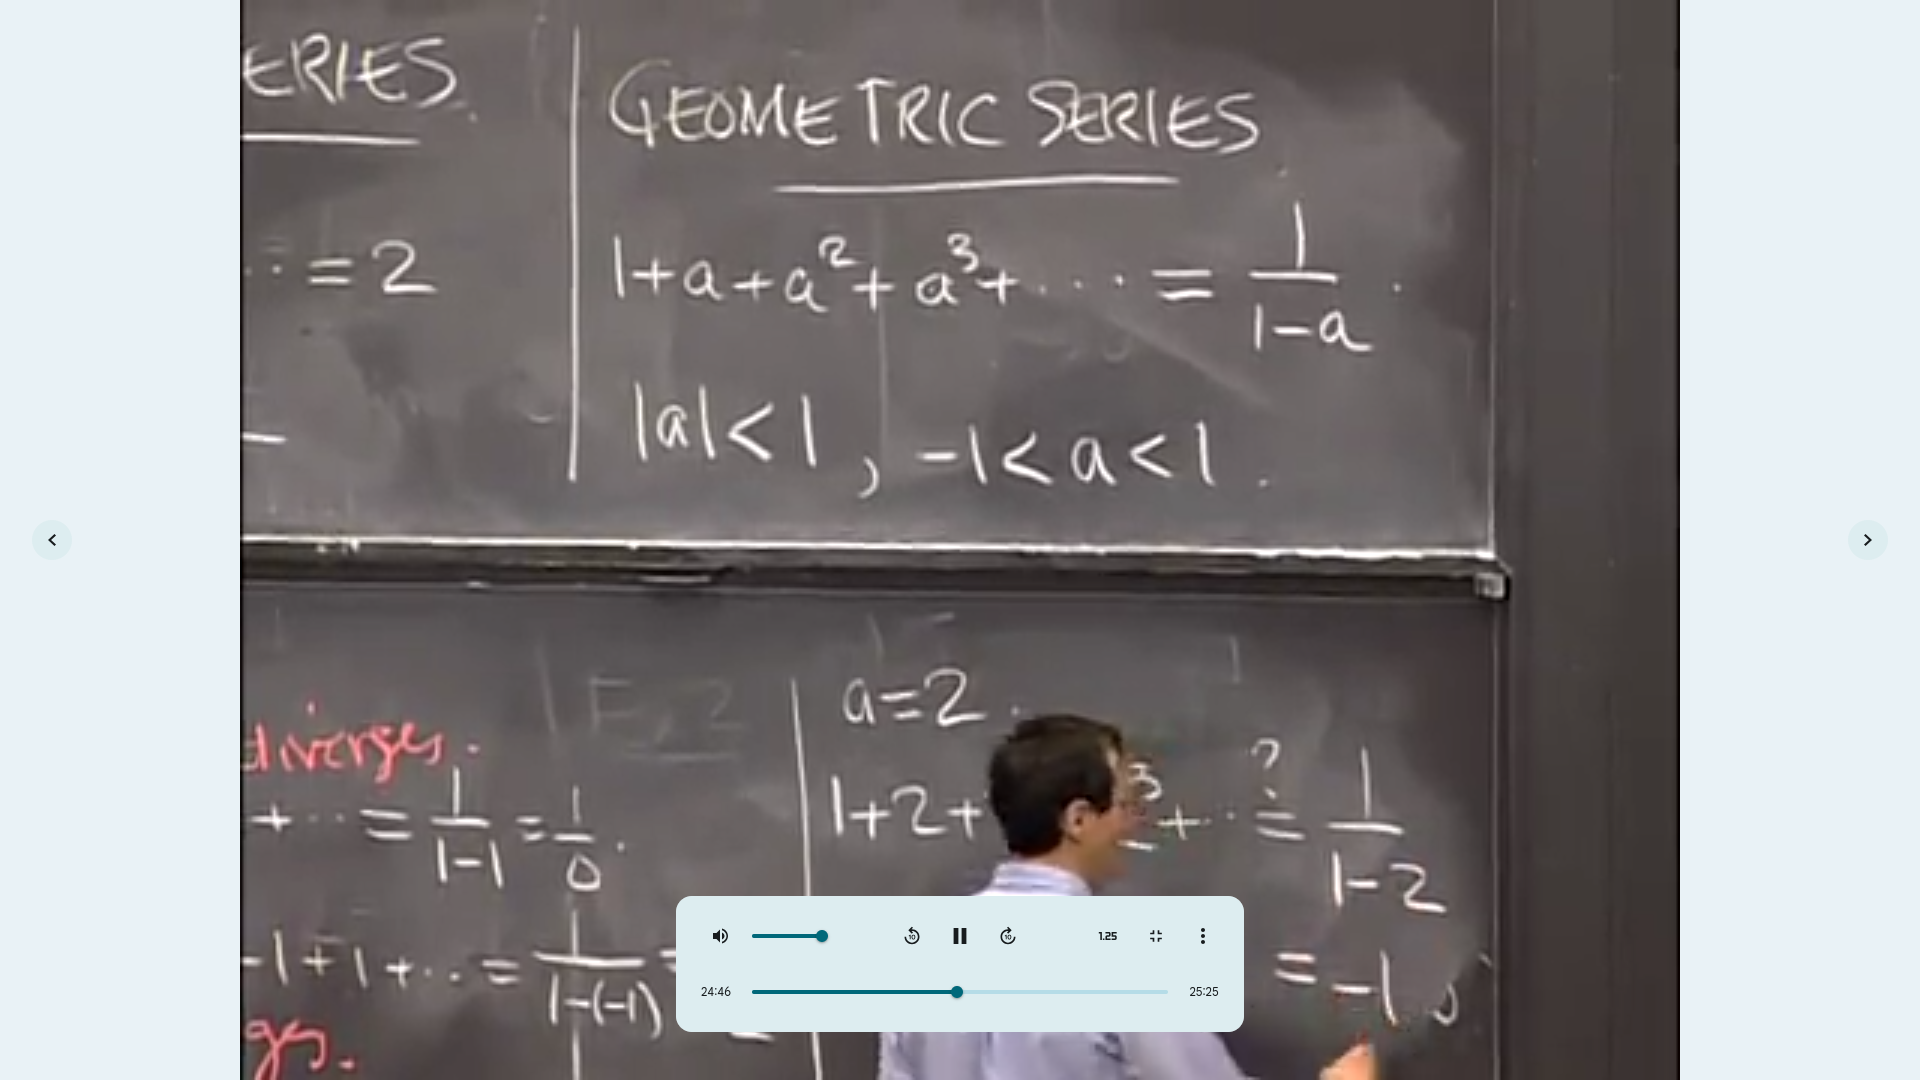 ERIES.
·· = 2
GEOMETRIC SERIES
1+a+a²+a³+···· = 1/(1-a).
|a|<1, -1<a<1.
diverges.
+··· = 1/(1-1) = 1/0.
-1+1+·· = 1/(1-(-1)) =
ges.
a=2.
1+2+ ³+·· ?= 1/(1-2)
= -1
24:46
25:25
1.25
10
10